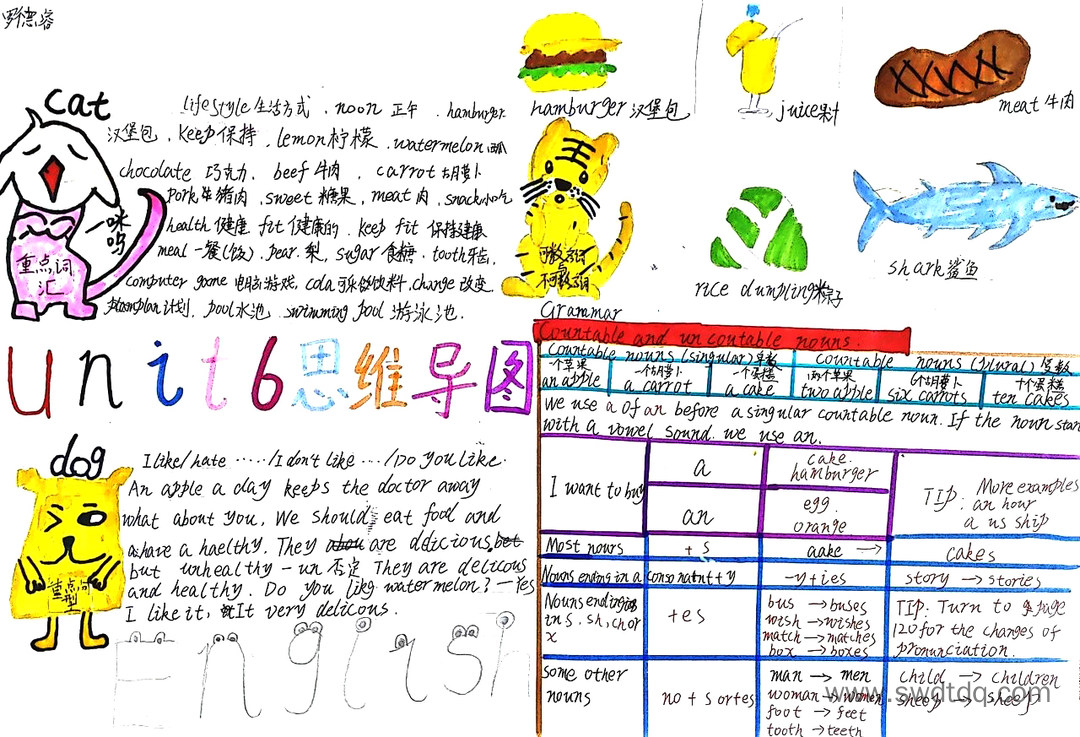 cat
lifestyle 生活方式 . noon 正午 . hamburger
汉堡包 . keep 保持 . lemon 柠檬 . watermelon 西瓜
chocolate 巧克力 . beef 牛肉 . carrot 胡萝卜
pork 猪肉 . sweet 糖果 , meat 肉 , snack 小吃
health 健康 fit 健康的 . keep fit 保持健康
meal 一餐(饭) . pear 梨 , sugar 食糖 . tooth 牙齿 ,
computer game 电脑游戏 , cola 可乐饮料 , change 改变
plan 计划 , pool 水池 . swimming pool 游泳池 .
一咪呜
重点词
汇
unit 6 思维导图
dog
I like/hate ……/I don't like …/Do you like.
An apple a day keeps the doctor away
what about you, We should eat food and
have a haelthy. They are delicious,
but unhealthy - un 否定 They are delicous
and healthy. Do you like watermelon? — Yes
I like it, It very delicous.
重点句
型
English
hamburger 汉堡包
juice 果汁
meat 牛肉
王
可数名词
与
不可数名词
rice dumpling 粽子
shark 鲨鱼
Grammar
Countable and un coutable nouns.
Countable nouns (singular) 单数
countable nouns (plural) 复数
一个苹果 一个胡萝卜 一个蛋糕 两个苹果 6个胡萝卜 十个蛋糕
an apple a carrot a cake two apple six carrots ten cakes
We use a of an before a singular countable noun. If the noun start
with a vowel sound. we use an.
I want to buy
a
cake.
hamburger
an
egg.
orange
TIP: More examples
an hour
a us ship
Most nours + s aake → cakes
Nouns ending in a consonatnt ty -y ties story → stories
Nouns ending
in s. sh, ch or
x
+es
bus → buses
wish → wishes
match → matches
box → boxes
TIP. Turn to page
120 for the changes of
pronunciation.
some other
nouns
no + s or tes
man → men
woman → women
foot → feet
tooth → teeth
child → children
sheep → sheep
www.swdtdq.com